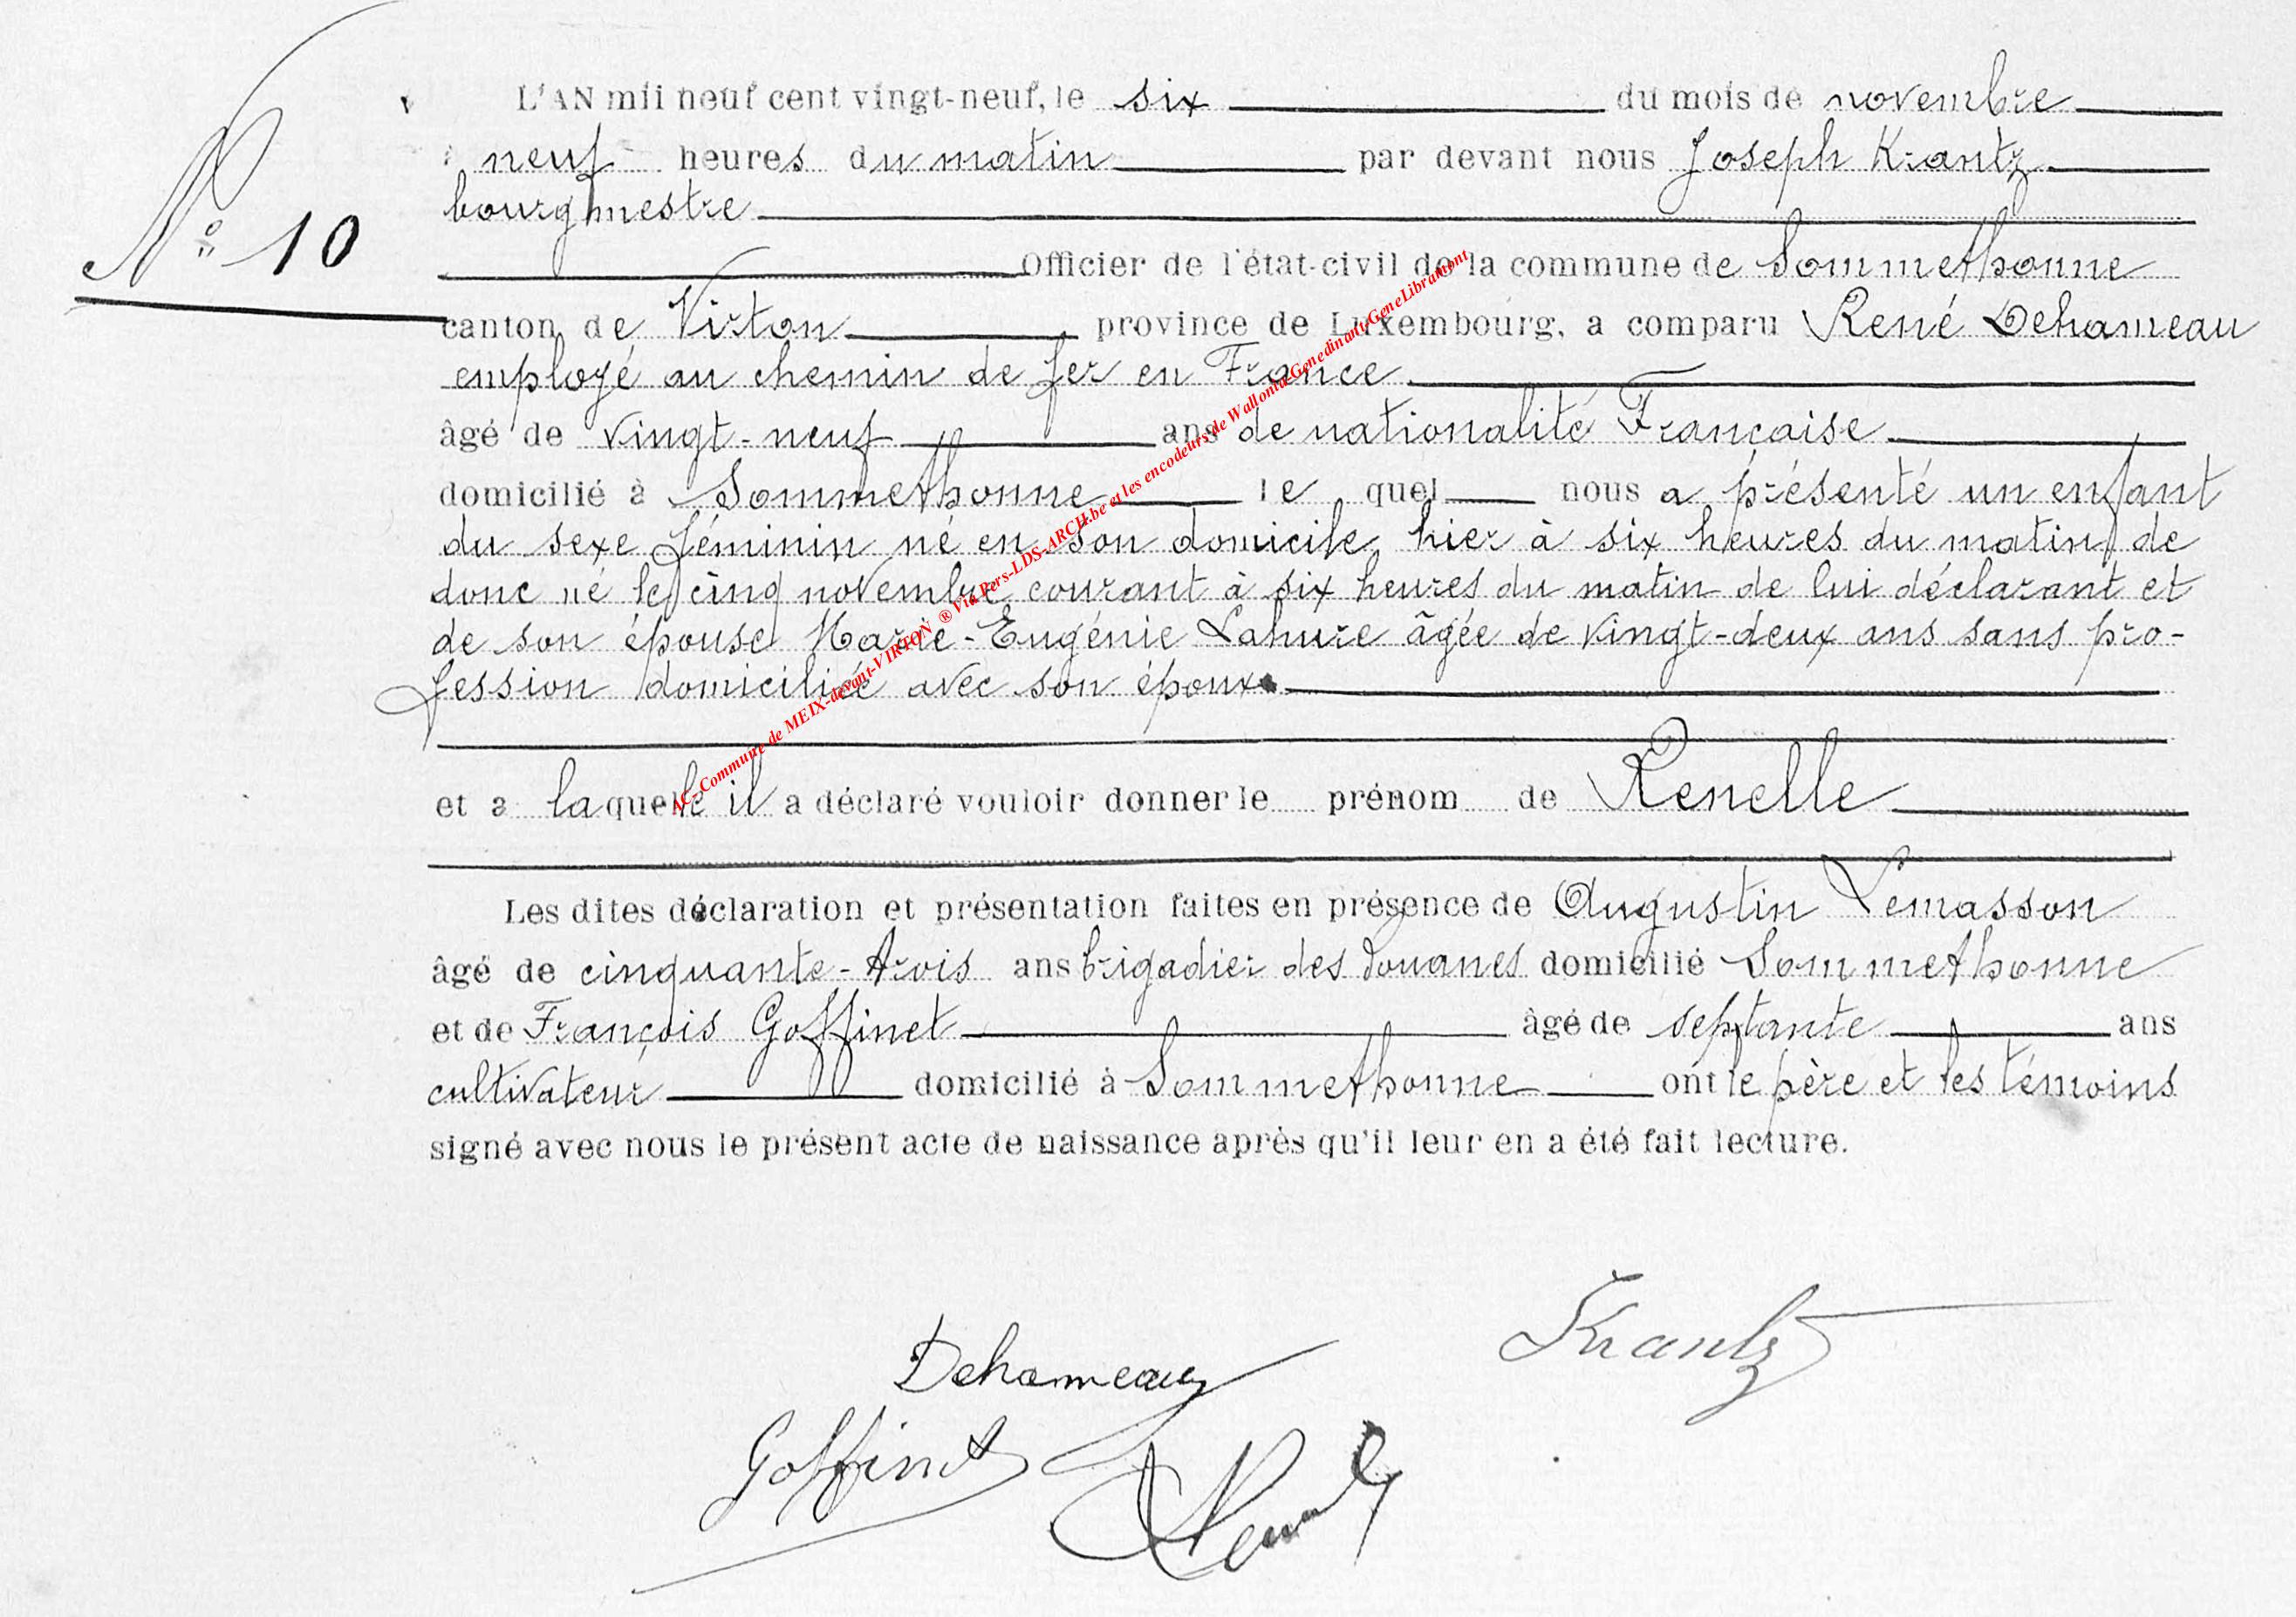 L'AN mil neuf cent vingt-neuf, le six du mois de novembre
à neuf heures du matin par devant nous Joseph Krantz
bourgmestre
N° 10
Officier de l'état-civil de la commune de Sommethonne
canton de Virton province de Luxembourg, a comparu René Dehameau
employé au chemin de fer en France
âgé de vingt-neuf ans de nationalité Française
domicilié à Sommethonne le quel nous a présenté un enfant
du sexe féminin né en son domicile hier à six heures du matin de
donc né le cinq novembre courant à six heures du matin de lui déclarant et
de son épouse Marie-Eugénie Lahure âgée de vingt-deux ans sans pro-
fession domiciliée avec son époux
et a laquelle il a déclaré vouloir donner le prénom de Renelle
Les dites déclaration et présentation faites en présence de Augustin Lemasson
âgé de cinquante-trois ans brigadier des douanes domicilié Sommethonne
et de François Goffinet âgé de septante ans
cultivateur domicilié à Sommethonne ont le père et les témoins
signé avec nous le présent acte de naissance après qu'il leur en a été fait lecture.
AC-Commune de MEIX-devant-VIRTON ® Via Pers-LDS-ARCH.be et les encodeurs de Wallonia-Genedinant-GeneLibramont
Krantz
Dehameau
Goffinet